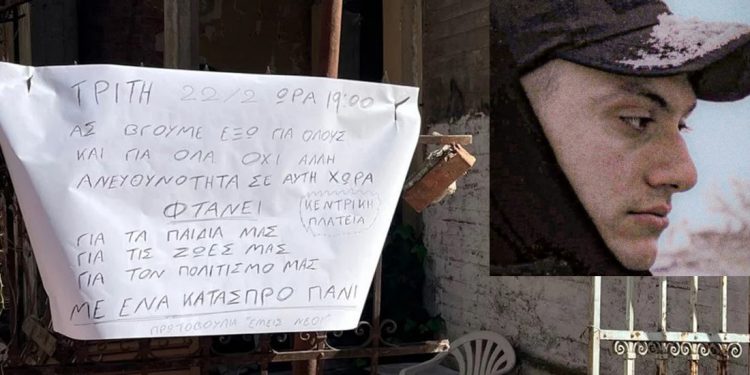 ΤΡΙΤΗ 22/2 ΩΡΑ 19:00
ΑΣ ΒΓΟΥΜΕ ΕΞΩ ΓΙΑ ΟΛΟΥΣ
ΚΑΙ ΓΙΑ ΟΛΑ ΟΧΙ ΑΛΛΗ
ΑΝΕΥΘΥΝΟΤΗΤΑ ΣΕ ΑΥΤΗ ΧΩΡΑ
ΦΤΑΝΕΙ
ΚΕΝΤΡΙΚΗ
ΠΛΑΤΕΙΑ
ΓΙΑ ΤΑ ΠΑΙΔΙΑ ΜΑΣ
ΓΙΑ ΤΙΣ ΖΩΕΣ ΜΑΣ
ΓΙΑ ΤΟΝ ΠΟΛΙΤΙΣΜΟ ΜΑΣ
ΜΕ ΕΝΑ ΚΑΤΑΣΠΡΟ ΠΑΝΙ
ΠΡΩΤΟΒΟΥΛΙΑ "ΕΜΕΙΣ ΝΕΟΙ"